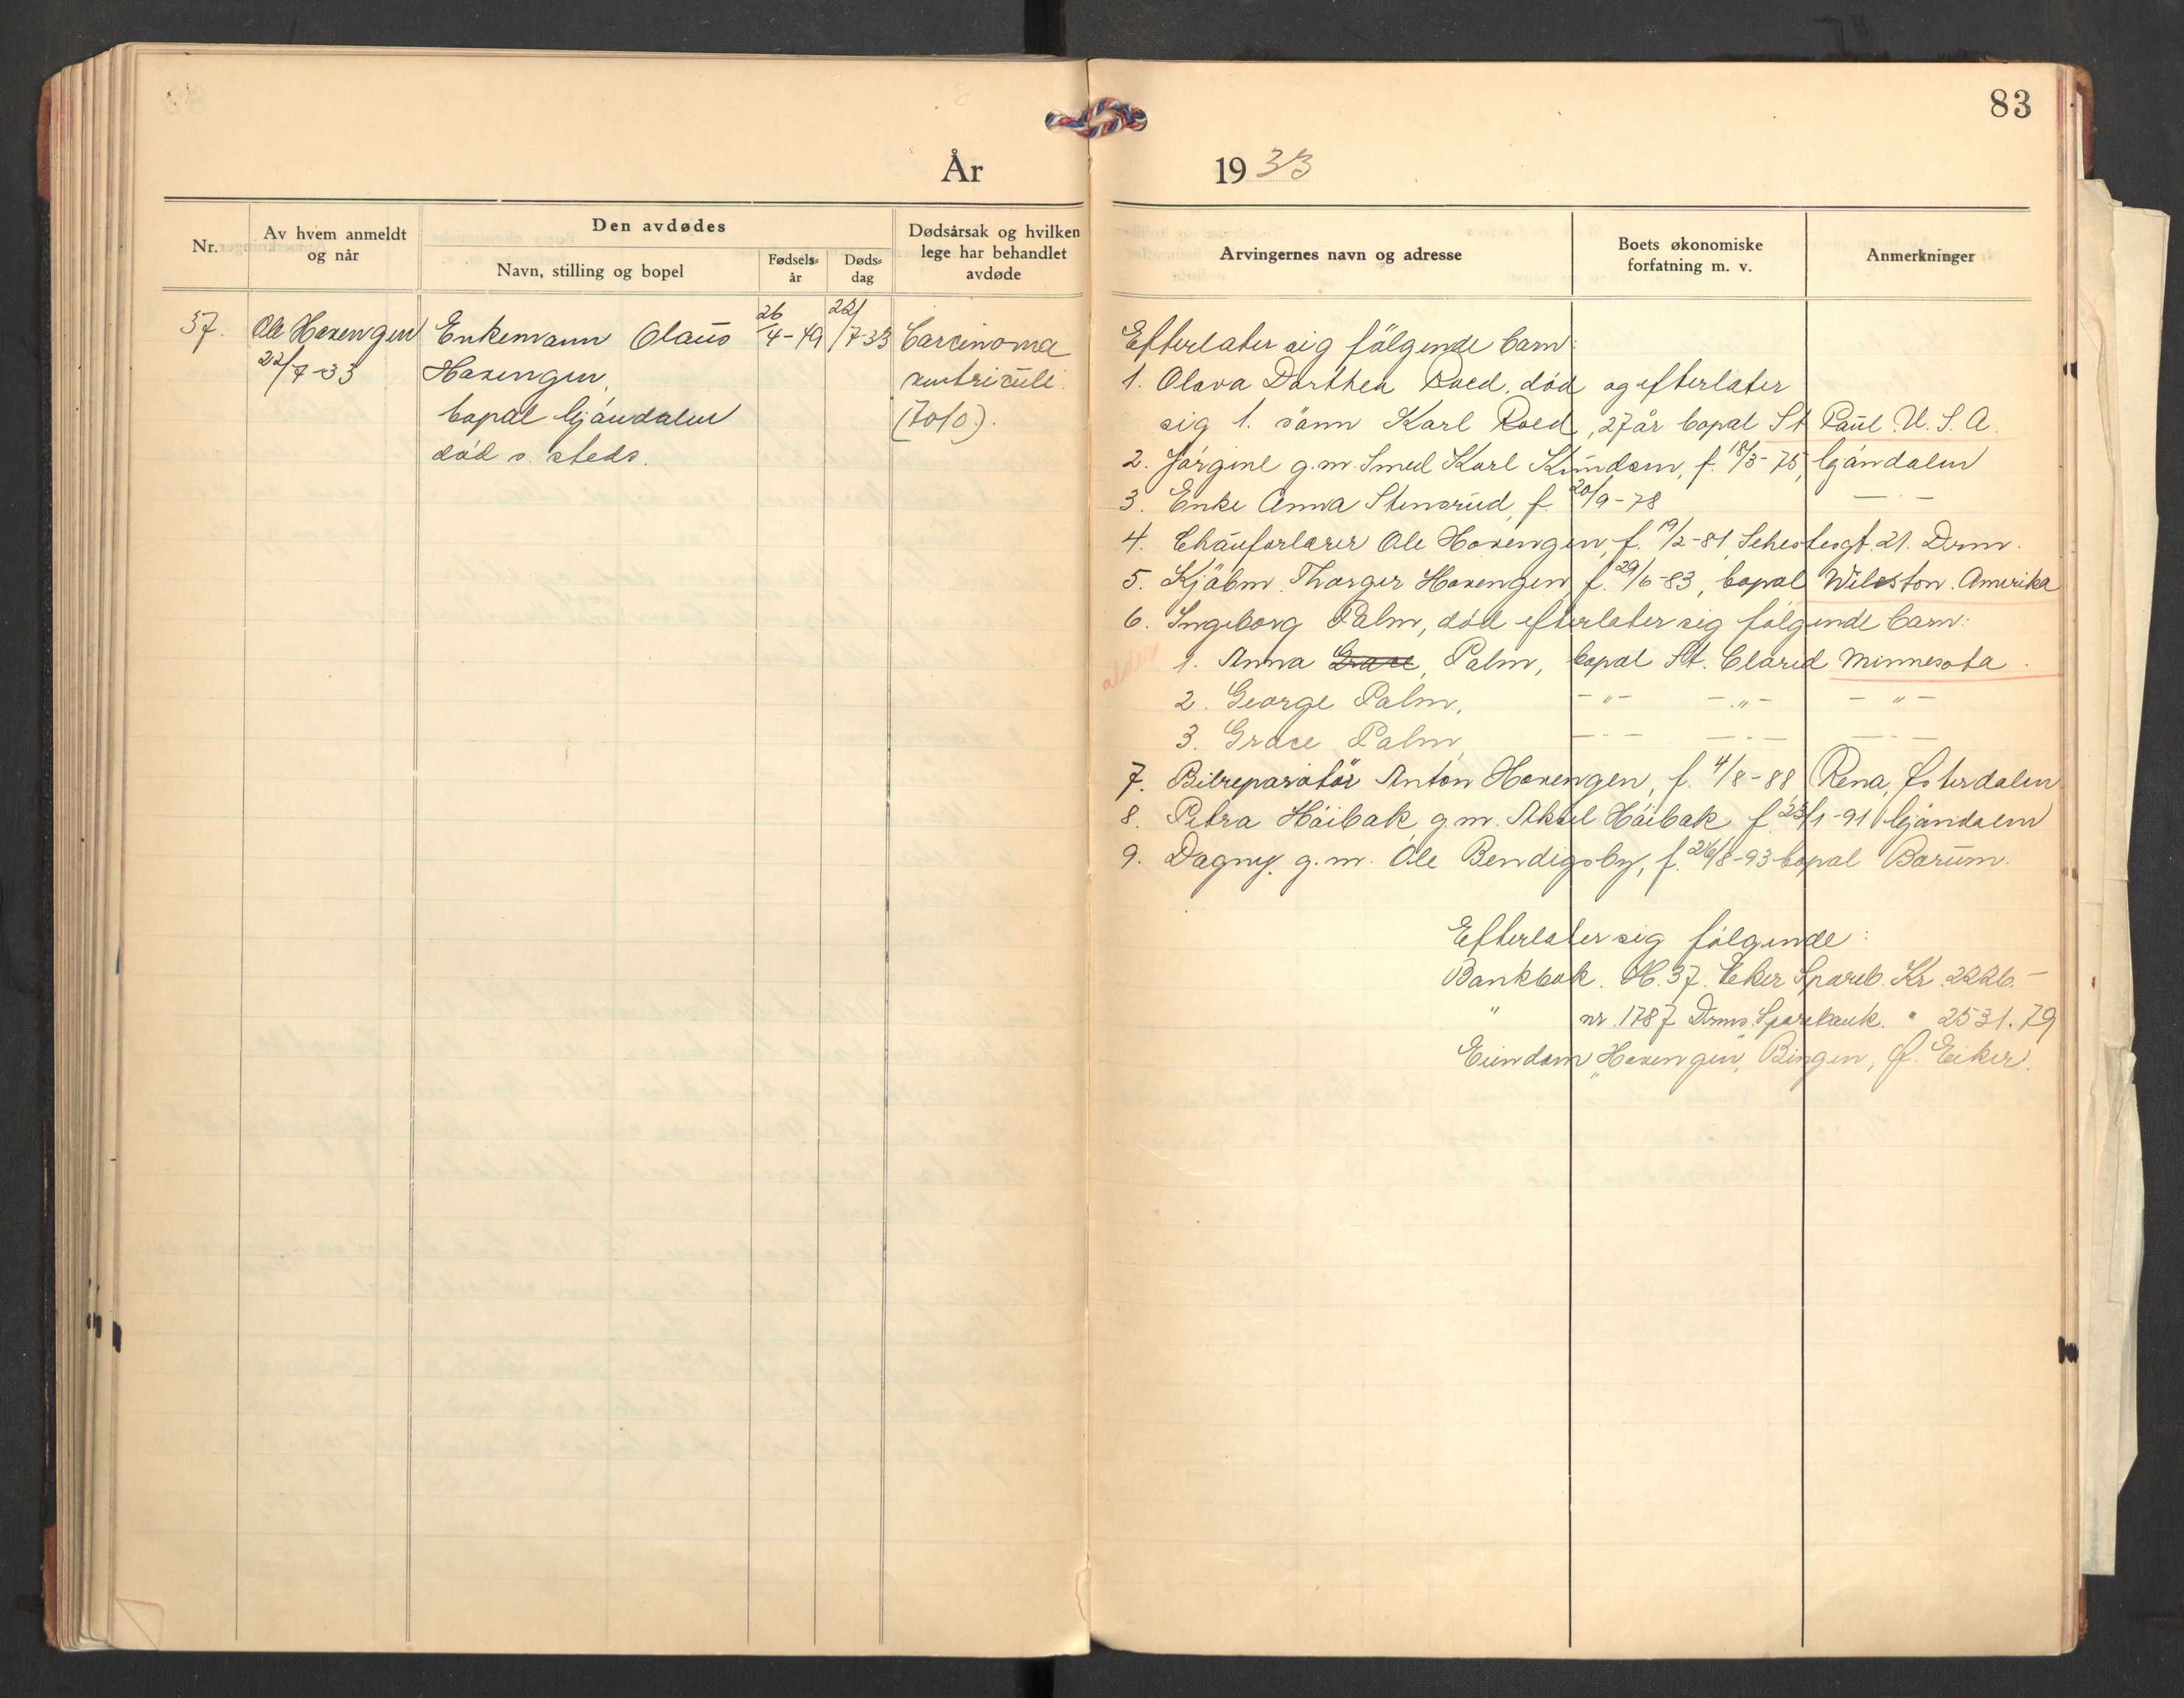 83
År 1933
Nr.
Av hvem anmeldt
og når
Den avdødes
Navn, stilling og bopel
Fødsels-
år
Døds-
dag
Dødsårsak og hvilken
lege har behandlet
avdøde
Arvingernes navn og adresse
Boets økonomiske
forfatning m. v.
Anmerkninger
37.
Ole Hovengen
22/7-33
Enkemann Olaus
Hovengen,
bopel Gjåndalen
død s. steds.
26/4-49
22/7-33
Carcinoma
ventriculi.
(Tolo.).
Efterlater sig følgende barn:
1. Olava Dorthea Roed, død og efterlater
sig 1. sønn Karl Roed, 27 år bopel St Paul U. S. A.
2. Jørgine g.m. Smed Karl Knudsen, f. 18/3-75, Gjåndalen
3. Enke Anna Stensrud, f. 20/9-78 — " —
4. Chaufførlærer Ole Hovengen, f. 19/2-81 Sehestesgt. 21. Drmn.
5. Kjøbm. Thorger Hovengen, f. 29/6-83, bopel Wilston. Amerika
6. Ingeborg Palm, død efterlater sig følgende barn:
alder
1. Anna Grace, Palm, bopel St. Clarid Minnesota.
2. George Palm, — " — — " — — " —
3. Grace Palm, — " — — " — — " —
7. Bilreparatør Anton Hovengen, f. 4/8-88 Rena, Østerdalen
8. Petra Høibak g.m. Aksel Høibak, f. 23/1-91 Gjåndalen
9. Dagny g.m. Ole Bendigsby, f. 26/8-93 bopel Bærum.
Efterlater sig følgende:
Bankbok. H. 37. Eker Spareb. Kr. 2226.—
" nr. 1787 Drms. Sparebank. " 2531.79
Eiendom "Hovengen", Bingen, Ø. Eiker.